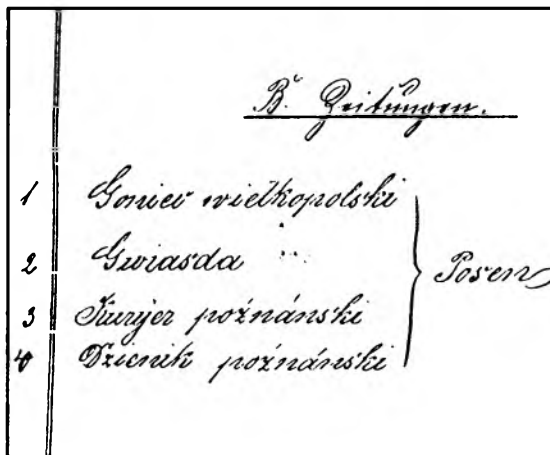 B. Zeitungen.
1 Goniec wielkopolski
2 Gwiasda "
3 Kuryjer poźnánski
4 Dzienik poźnánski
Posen